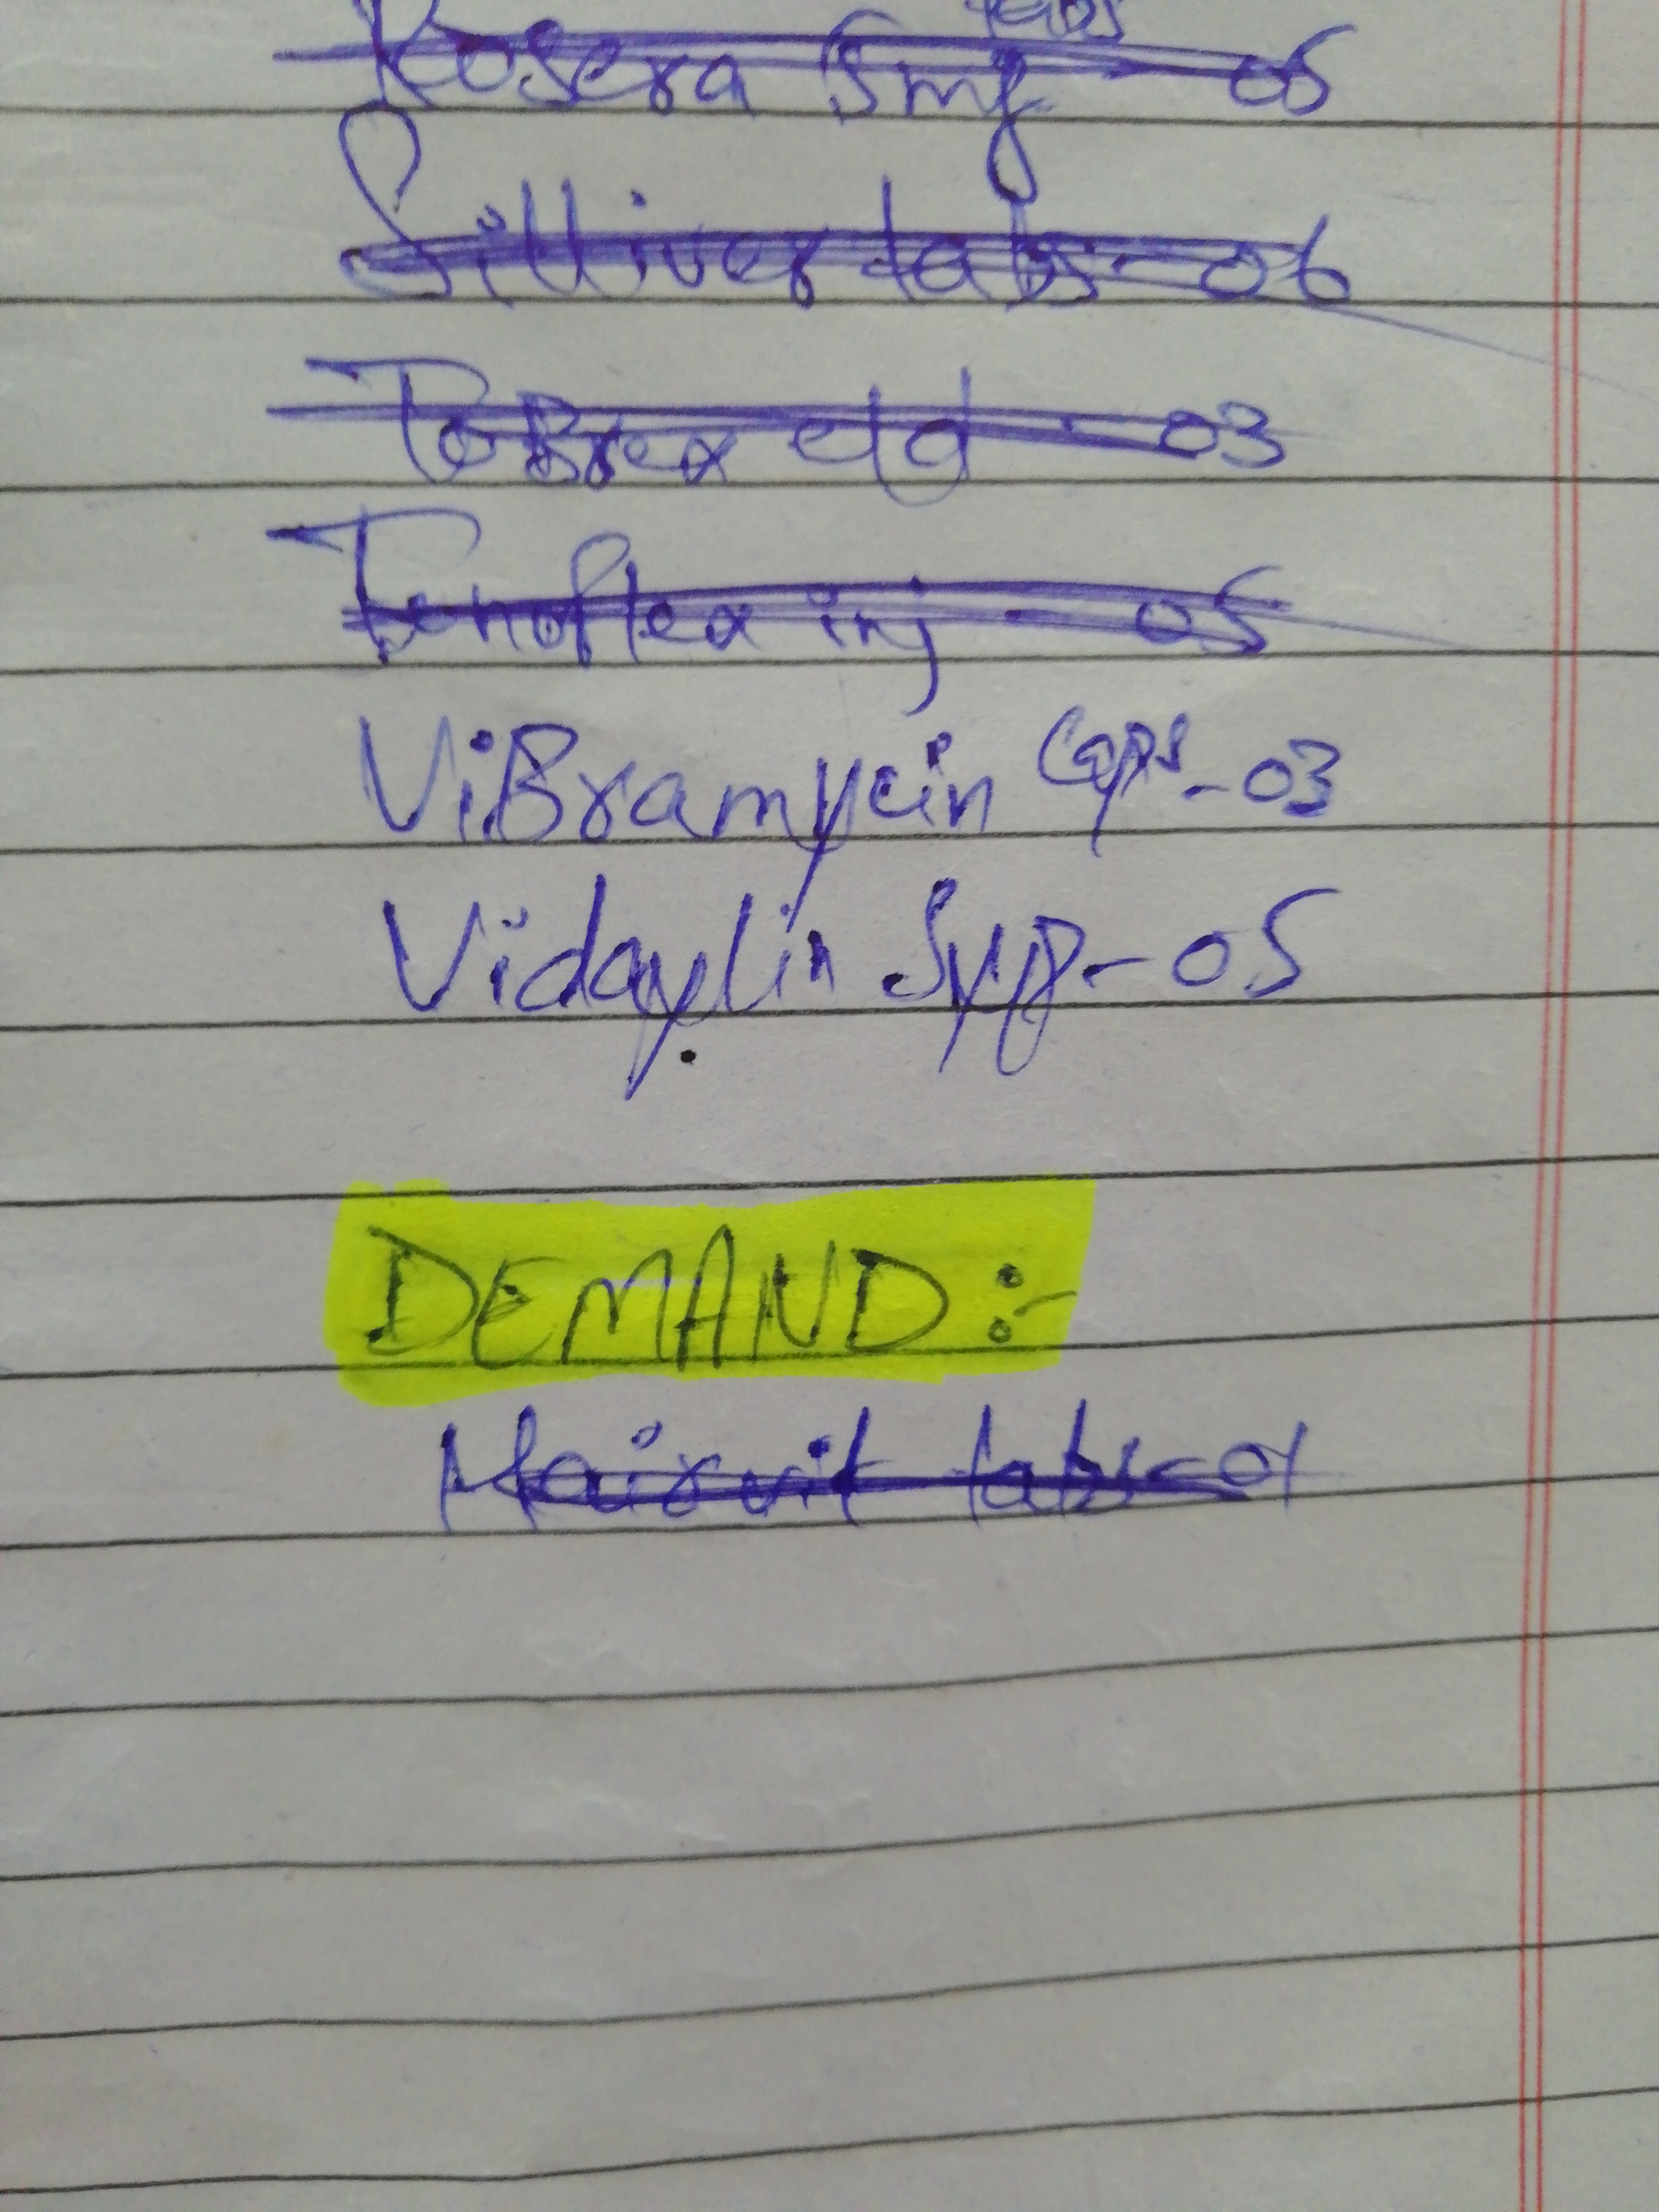 Rosera 5mg tabs - 05
Silliver tabs - 06
ToBrex e/d - 03
Tenoflex inj - 05
ViBramycin Caps - 03
Vidaylin Syp - 05
DEMAND :-
Hairvit tabs - 01